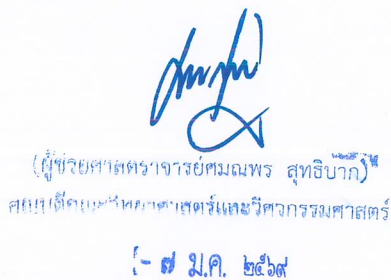 (ผู้ช่วยศาสตราจารย์ศมณพร สุทธิบาก)
คณบดีคณะวิทยาศาสตร์และวิศวกรรมศาสตร์
- ๗ ม.ค. ๒๕๖๙